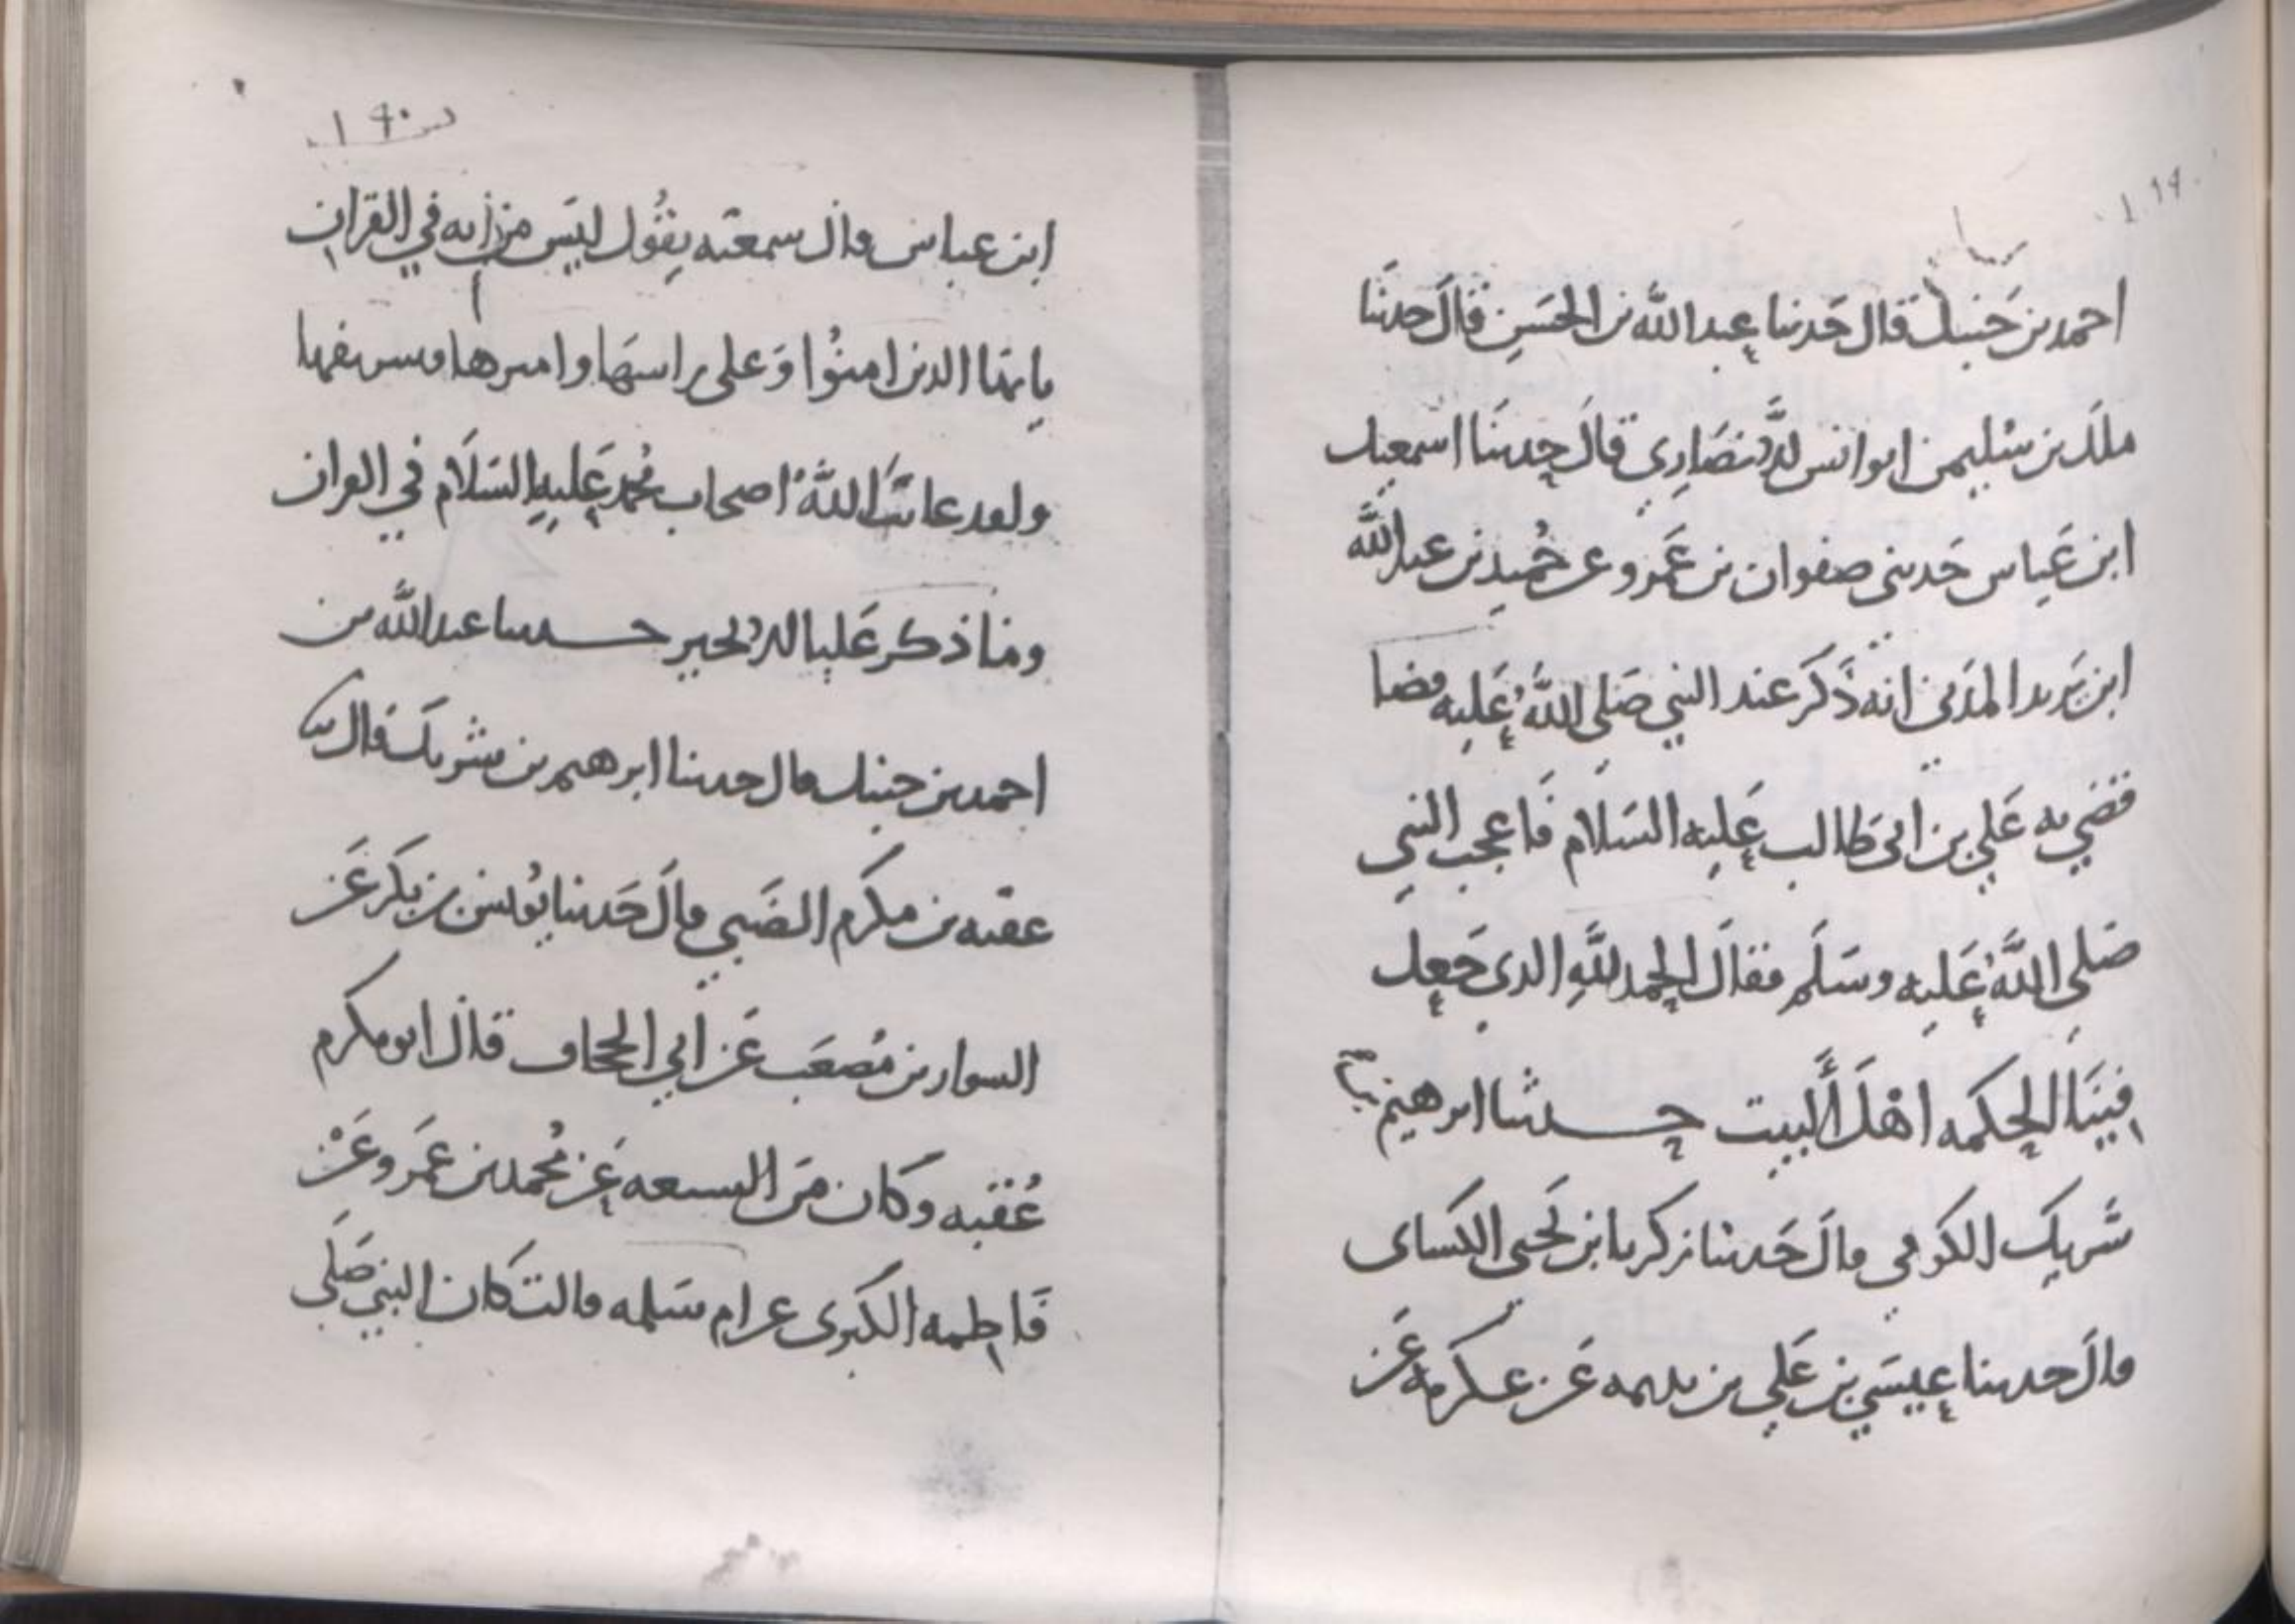 احمد بن حنبل قال حدثنا عبد الله بن الحسن قال حدثنا
ملك بن سليمن ابو انس الانصاري قال حدثنا اسمعيل
ابن عياس حدثني صفوان بن عمرو عن حميد بن عبد الله
ابن يزيد المدني انه ذكر عند النبي صلى الله عليه قضا
قضي به علي بن ابي طالب عليه السلام فاعجب النبي
صلى الله عليه وسلم فقال الحمد لله الذي جعل
فينا الحكمه اهل البيت حدثنا ابرهيم بن
شريك الكوفي قال حدثنا زكريا ابن يحيى الكساى
قال حدثنا عيسي بن علي بن عن عكرمه عن
١٩٠
ابن عباس قال سمعته يقول ليس من ايه في القران
يا يها الذين امنوا وعلي راسها واميرها وشريفها
ولقد عاتب الله اصحاب محمد عليه السلام في القران
وما ذكر عليا الا بخير حدثنا عبد الله بن
احمد بن حنبل قال حدثنا ابرهيم بن شريك قال ثنا
عقبه بن مكرم الضبي قال حدثنا يونس بن بكر عن
السوار بن مصعب عن ابي الجحاف قال ابو مكرم
عقبه وكان من الشيعه عن محمد بن عمرو عن
فاطمه الكبرى عن ام سلمه قالت كان النبي صلى